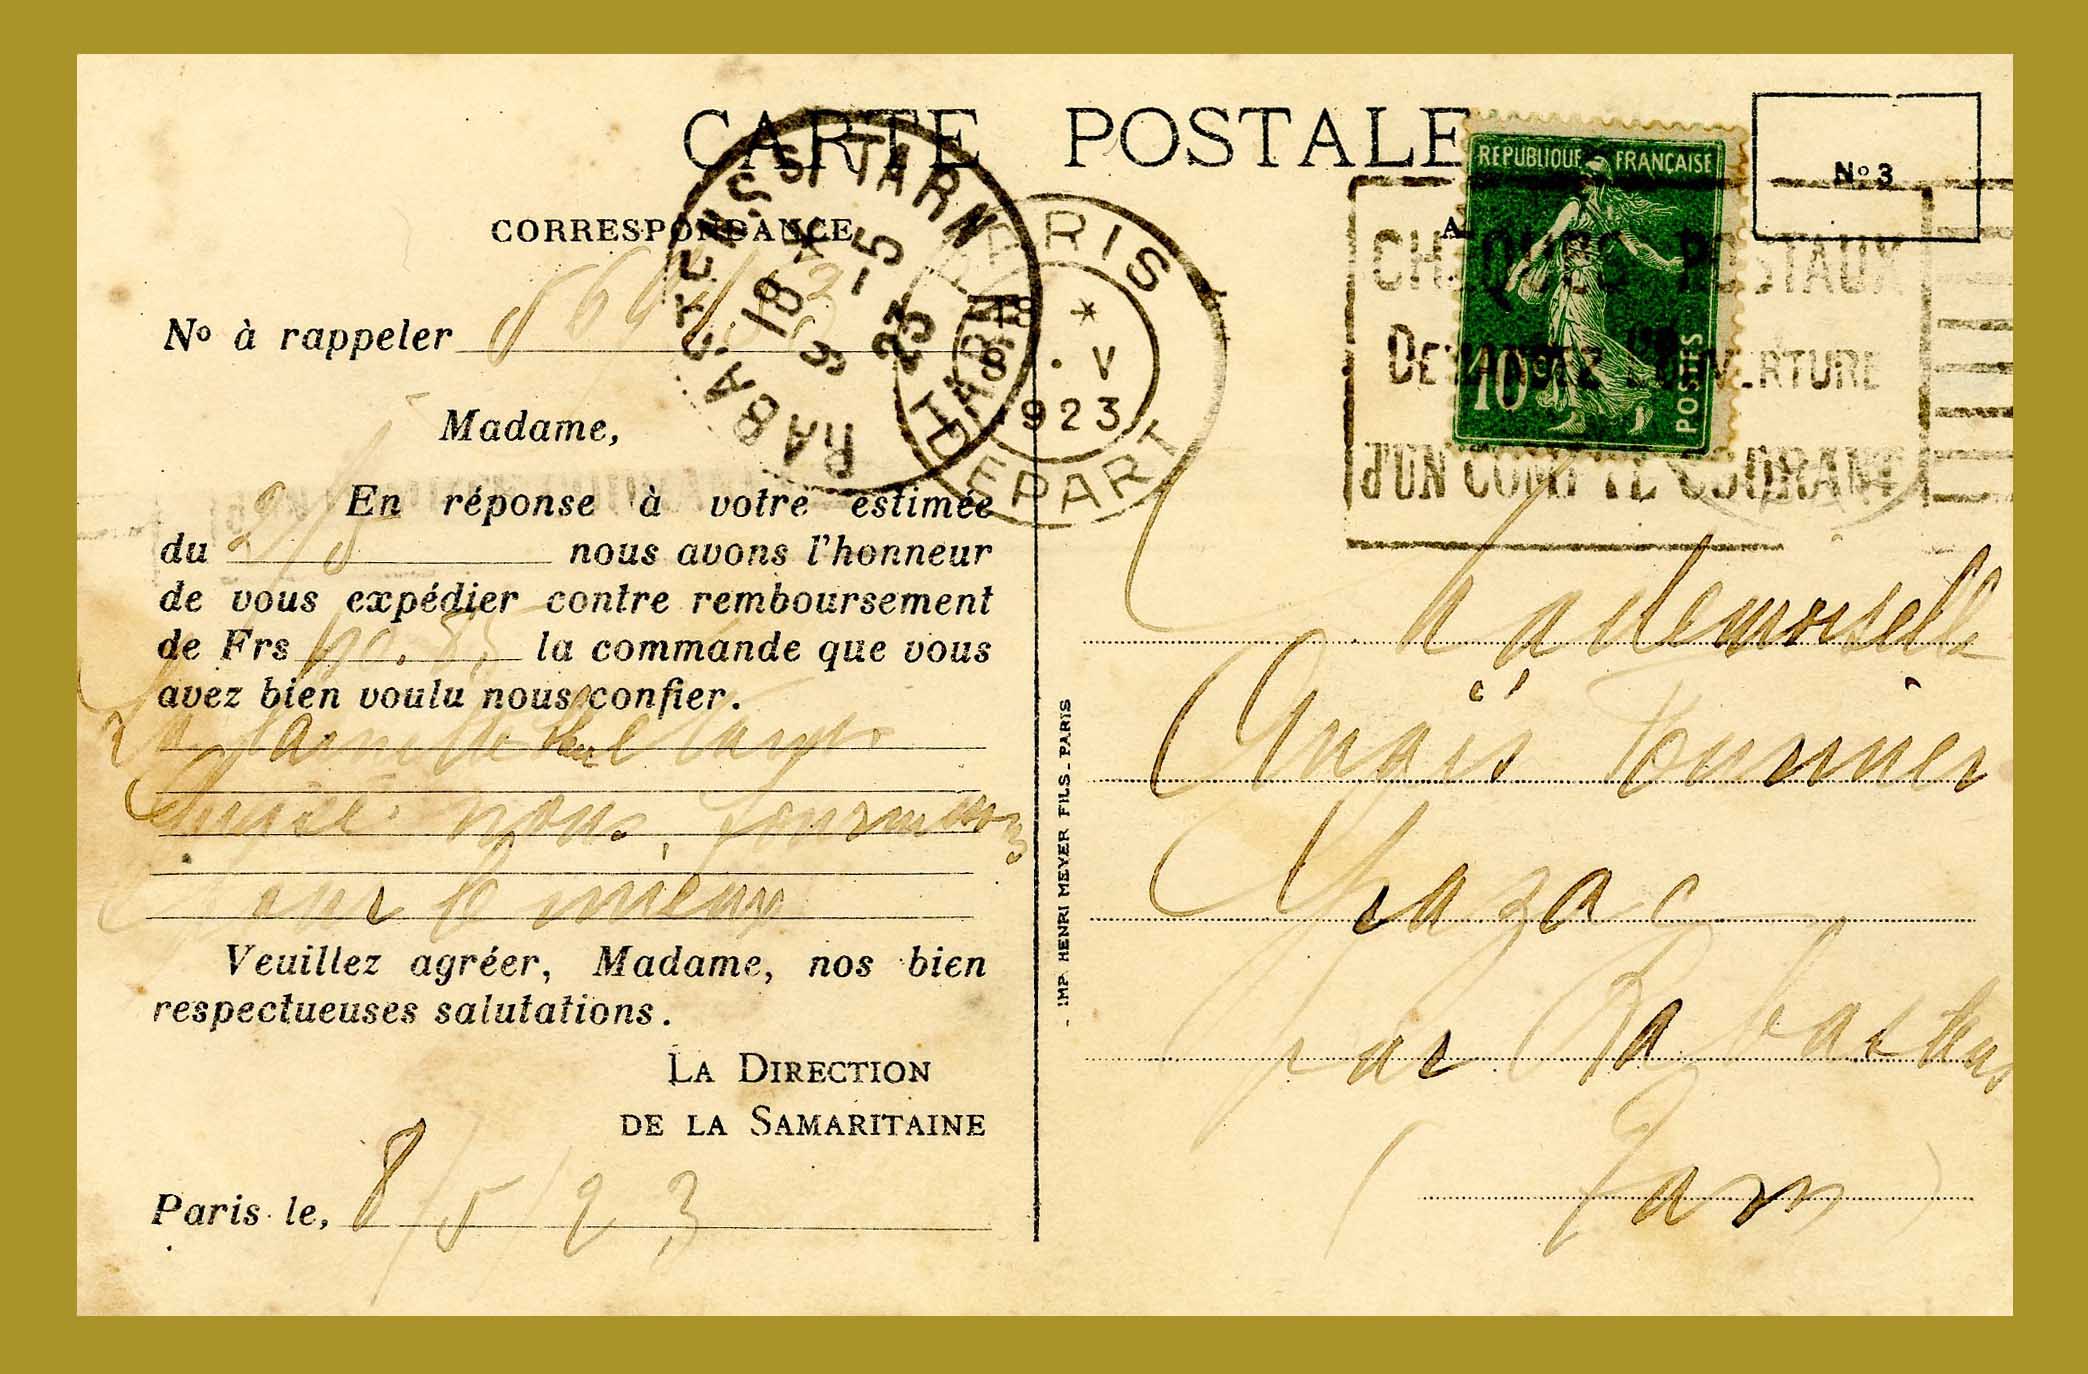 CARTE POSTALE
N° 3
REPUBLIQUE FRANÇAISE
10c
POSTES
CHÈQUES POSTAUX
DEMANDEZ L'OUVERTURE
D'UN COMPTE COURANT
RABASTENS S/ TARN
18 9-5 23
TARN
PARIS
18 *
8 . V
923
DEPART
CORRESPONDANCE
N° à rappeler
Madame,
En réponse à votre estimée
du 2/5 nous avons l'honneur
de vous expédier contre remboursement
de Frs la commande que vous
avez bien voulu nous confier.
La
nous fournissons
pour le mieux
Veuillez agréer, Madame, nos bien
respectueuses salutations.
LA DIRECTION
DE LA SAMARITAINE
Paris le, 8/5/23
- IMP. HENRI MEYER FILS - PARIS
Mademoiselle
Tournier
par Rabastens
(Tarn)